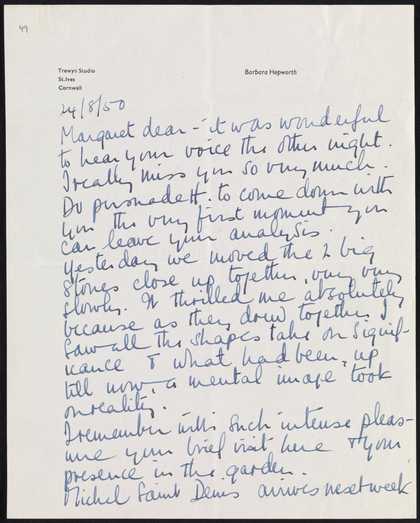 49
Trewyn Studio
St.Ives
Cornwall
Barbara Hepworth
24/8/50
Margaret dear - it was wonderful
to hear your voice the other night.
I really miss you so very much.
Do persuade H. to come down with
you the very first moment you
can leave your analysis.
Yesterday we moved the 2 big
stones close up together, very very
slowly. It thrilled me absolutely
because as they drew together I
saw all the shapes take on signif-
icance & what had been, up
till now, a mental image took
on reality.
I remember with such intense pleas-
ure your brief visit here & your
presence in the garden.
Michel Saint Denis arrives next week